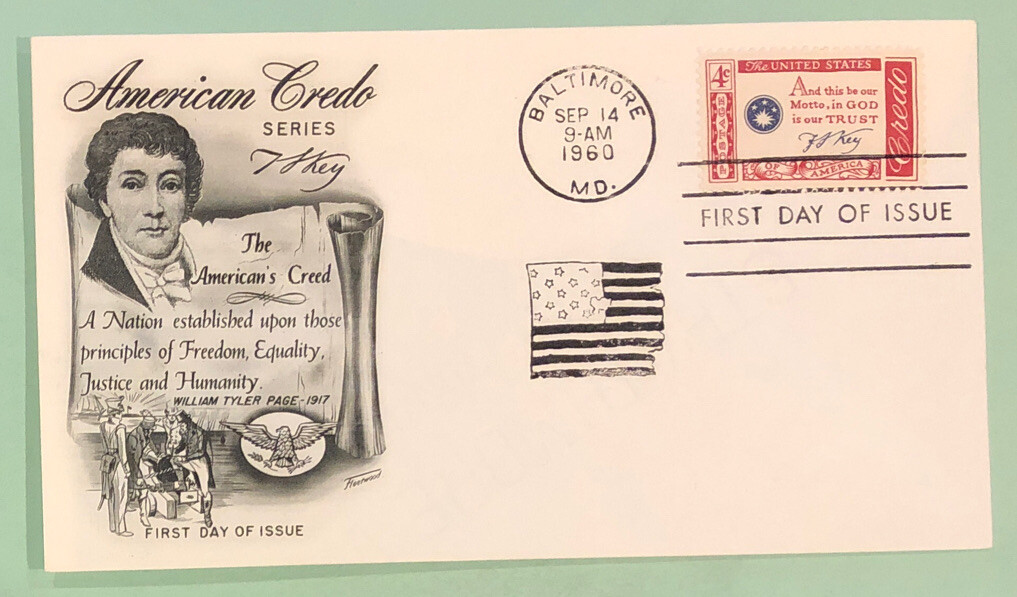 American Credo
SERIES
F S Key
The
American's Creed
A Nation established upon those
principles of Freedom, Equality,
Justice and Humanity.
WILLIAM TYLER PAGE - 1917
Fleetwood
FIRST DAY OF ISSUE
BALTIMORE
SEP 14
9-AM
1960
MD.
4c
POSTAGE
The UNITED STATES
And this be our
Motto, in GOD
is our TRUST
F S Key
OF AMERICA
Credo
FIRST DAY OF ISSUE